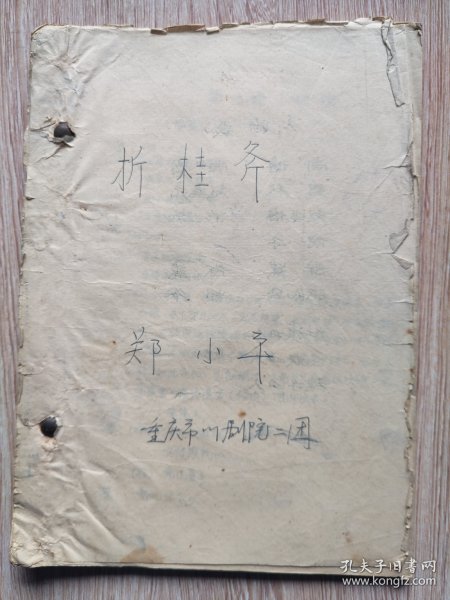 折桂斧
郑小平
重庆市川剧院二团
孔夫子旧书网
www.kongfz.com